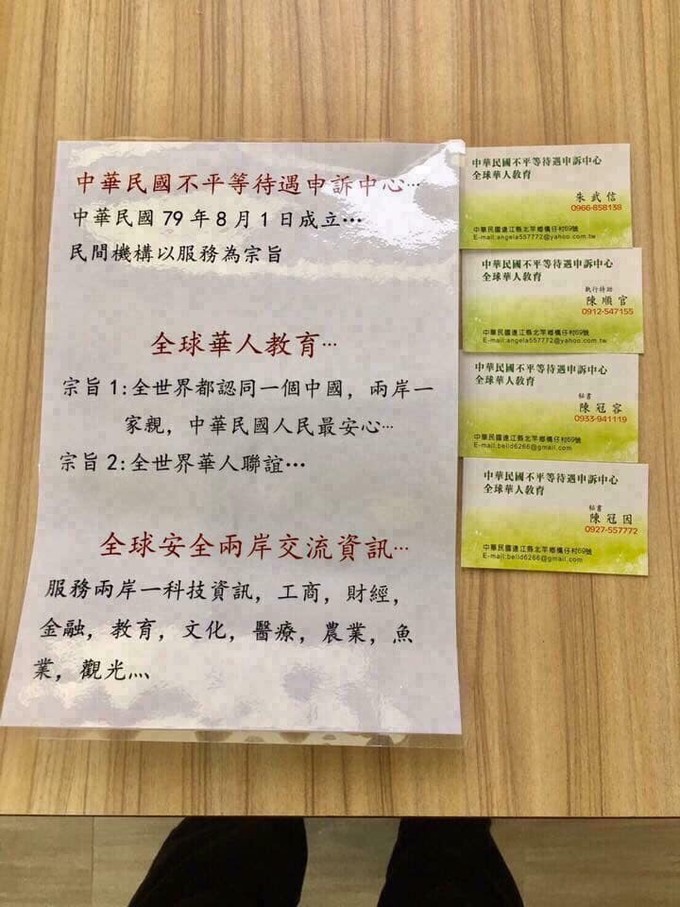 中華民國不平等待遇申訴中心…
中華民國 79 年 8 月 1 日成立…
民間機構以服務為宗旨
全球華人教育…
宗旨 1:全世界都認同一個中國，兩岸一
家親，中華民國人民最安心…
宗旨 2:全世界華人聯誼…
全球安全兩岸交流資訊…
服務兩岸一科技資訊，工商，財經，
金融，教育，文化，醫療，農業，魚
業，觀光灬
中華民國不平等待遇申訴中心
全球華人教育
朱武信
0966-858138
中華民國連江縣北竿鄉橋仔村69號
E-mail:angela557772@yahoo.com.tw
中華民國不平等待遇申訴中心
全球華人教育
執行特助
陳順官
0912-547155
中華民國連江縣北竿鄉橋仔村69號
E-mail:angela557772@yahoo.com.tw
中華民國不平等待遇申訴中心
全球華人教育
秘書
陳冠容
0933-941119
中華民國連江縣北竿鄉橋仔村69號
E-mail:belld6266@gmail.com
中華民國不平等待遇申訴中心
全球華人教育
秘書
陳冠因
0927-557772
中華民國連江縣北竿鄉橋仔村69號
E-mail:belld6266@gmail.com